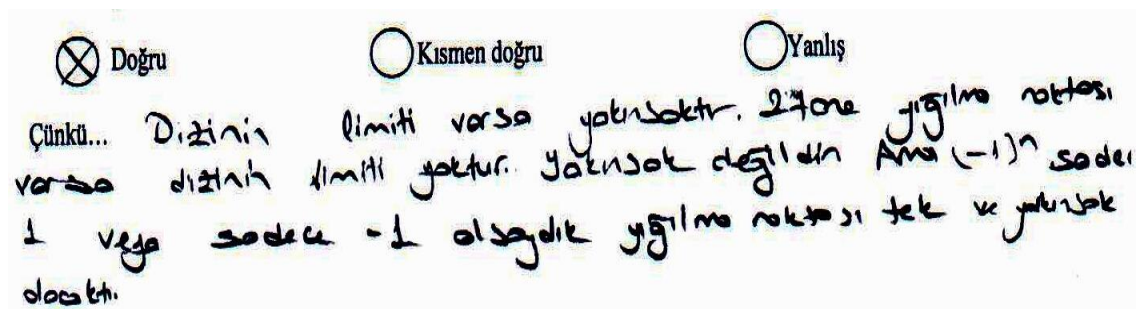 Doğru Kısmen doğru Yanlış
Çünkü... Dizinin limiti varsa yakınsaktır. 2 tane yığılma noktası
varsa dizinin limiti yoktur. Yakınsak değildir Ama (-1)ⁿ sadec
1 veya sadece -1 olsaydık yığılma noktası tek ve yakınsak
olacaktı.